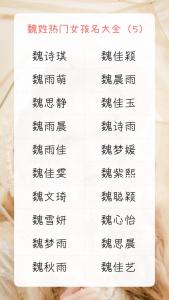 魏姓热门女孩名大全（5）
魏诗琪 魏佳颖
魏雨萌 魏晨雨
魏思静 魏佳玉
魏雨晨 魏诗雨
魏雨佳 魏梦媛
魏佳雯 魏紫熙
魏文琦 魏聪颖
魏雪妍 魏心怡
魏梦雨 魏思晨
魏秋雨 魏佳艺